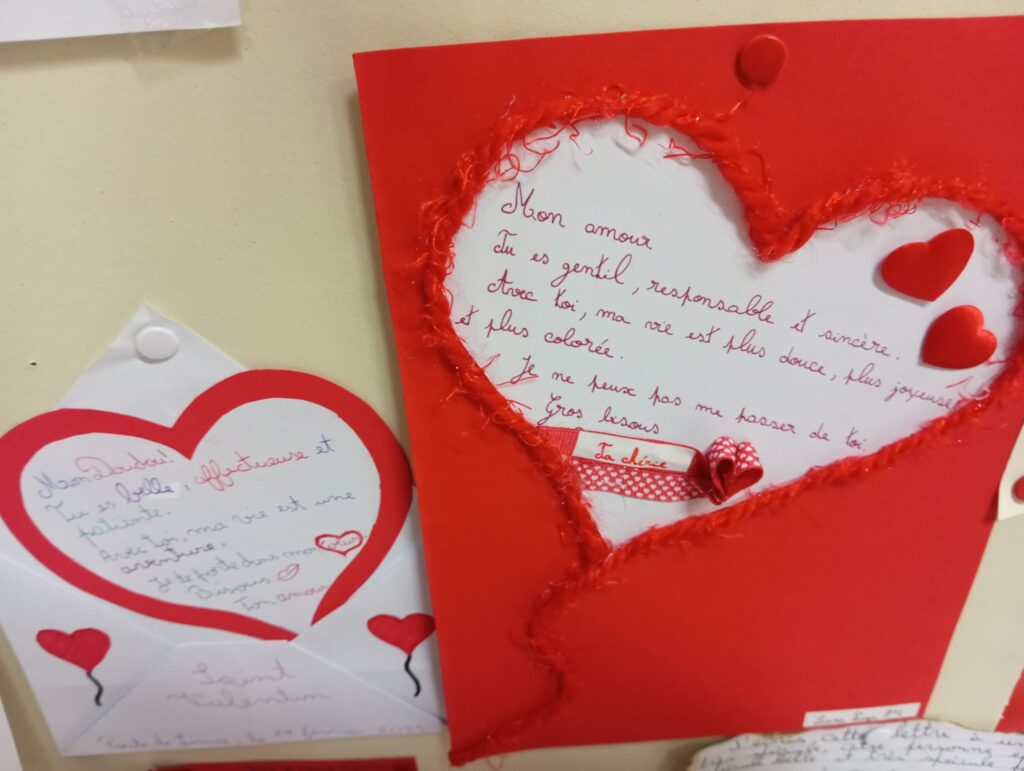 Mon amour
Tu es gentil, responsable et sincère.
Avec toi, ma vie est plus douce, plus joyeuse
et plus colorée.
Je ne peux pas me passer de toi.
Gros bisous
Ta chérie
Mon Doudou!
Tu es belle, affectueuse et
patiente.
Avec toi, ma vie est une
aventure.
Je te porte dans mon cœur
Bisous
Ton amour
Saint
Valentin
le 14 février
cette lettre à
personne
belle et très spéciale